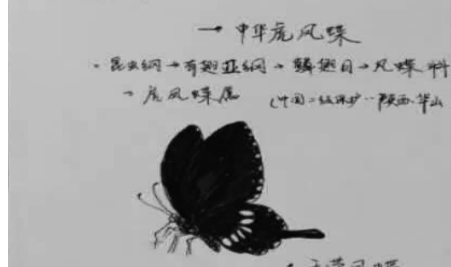 → 中华虎凤蝶
· 昆虫纲→有翅亚纲→鳞翅目→凤蝶科
→ 虎凤蝶属 (中国二级保护··陕西·华山
凤蝶